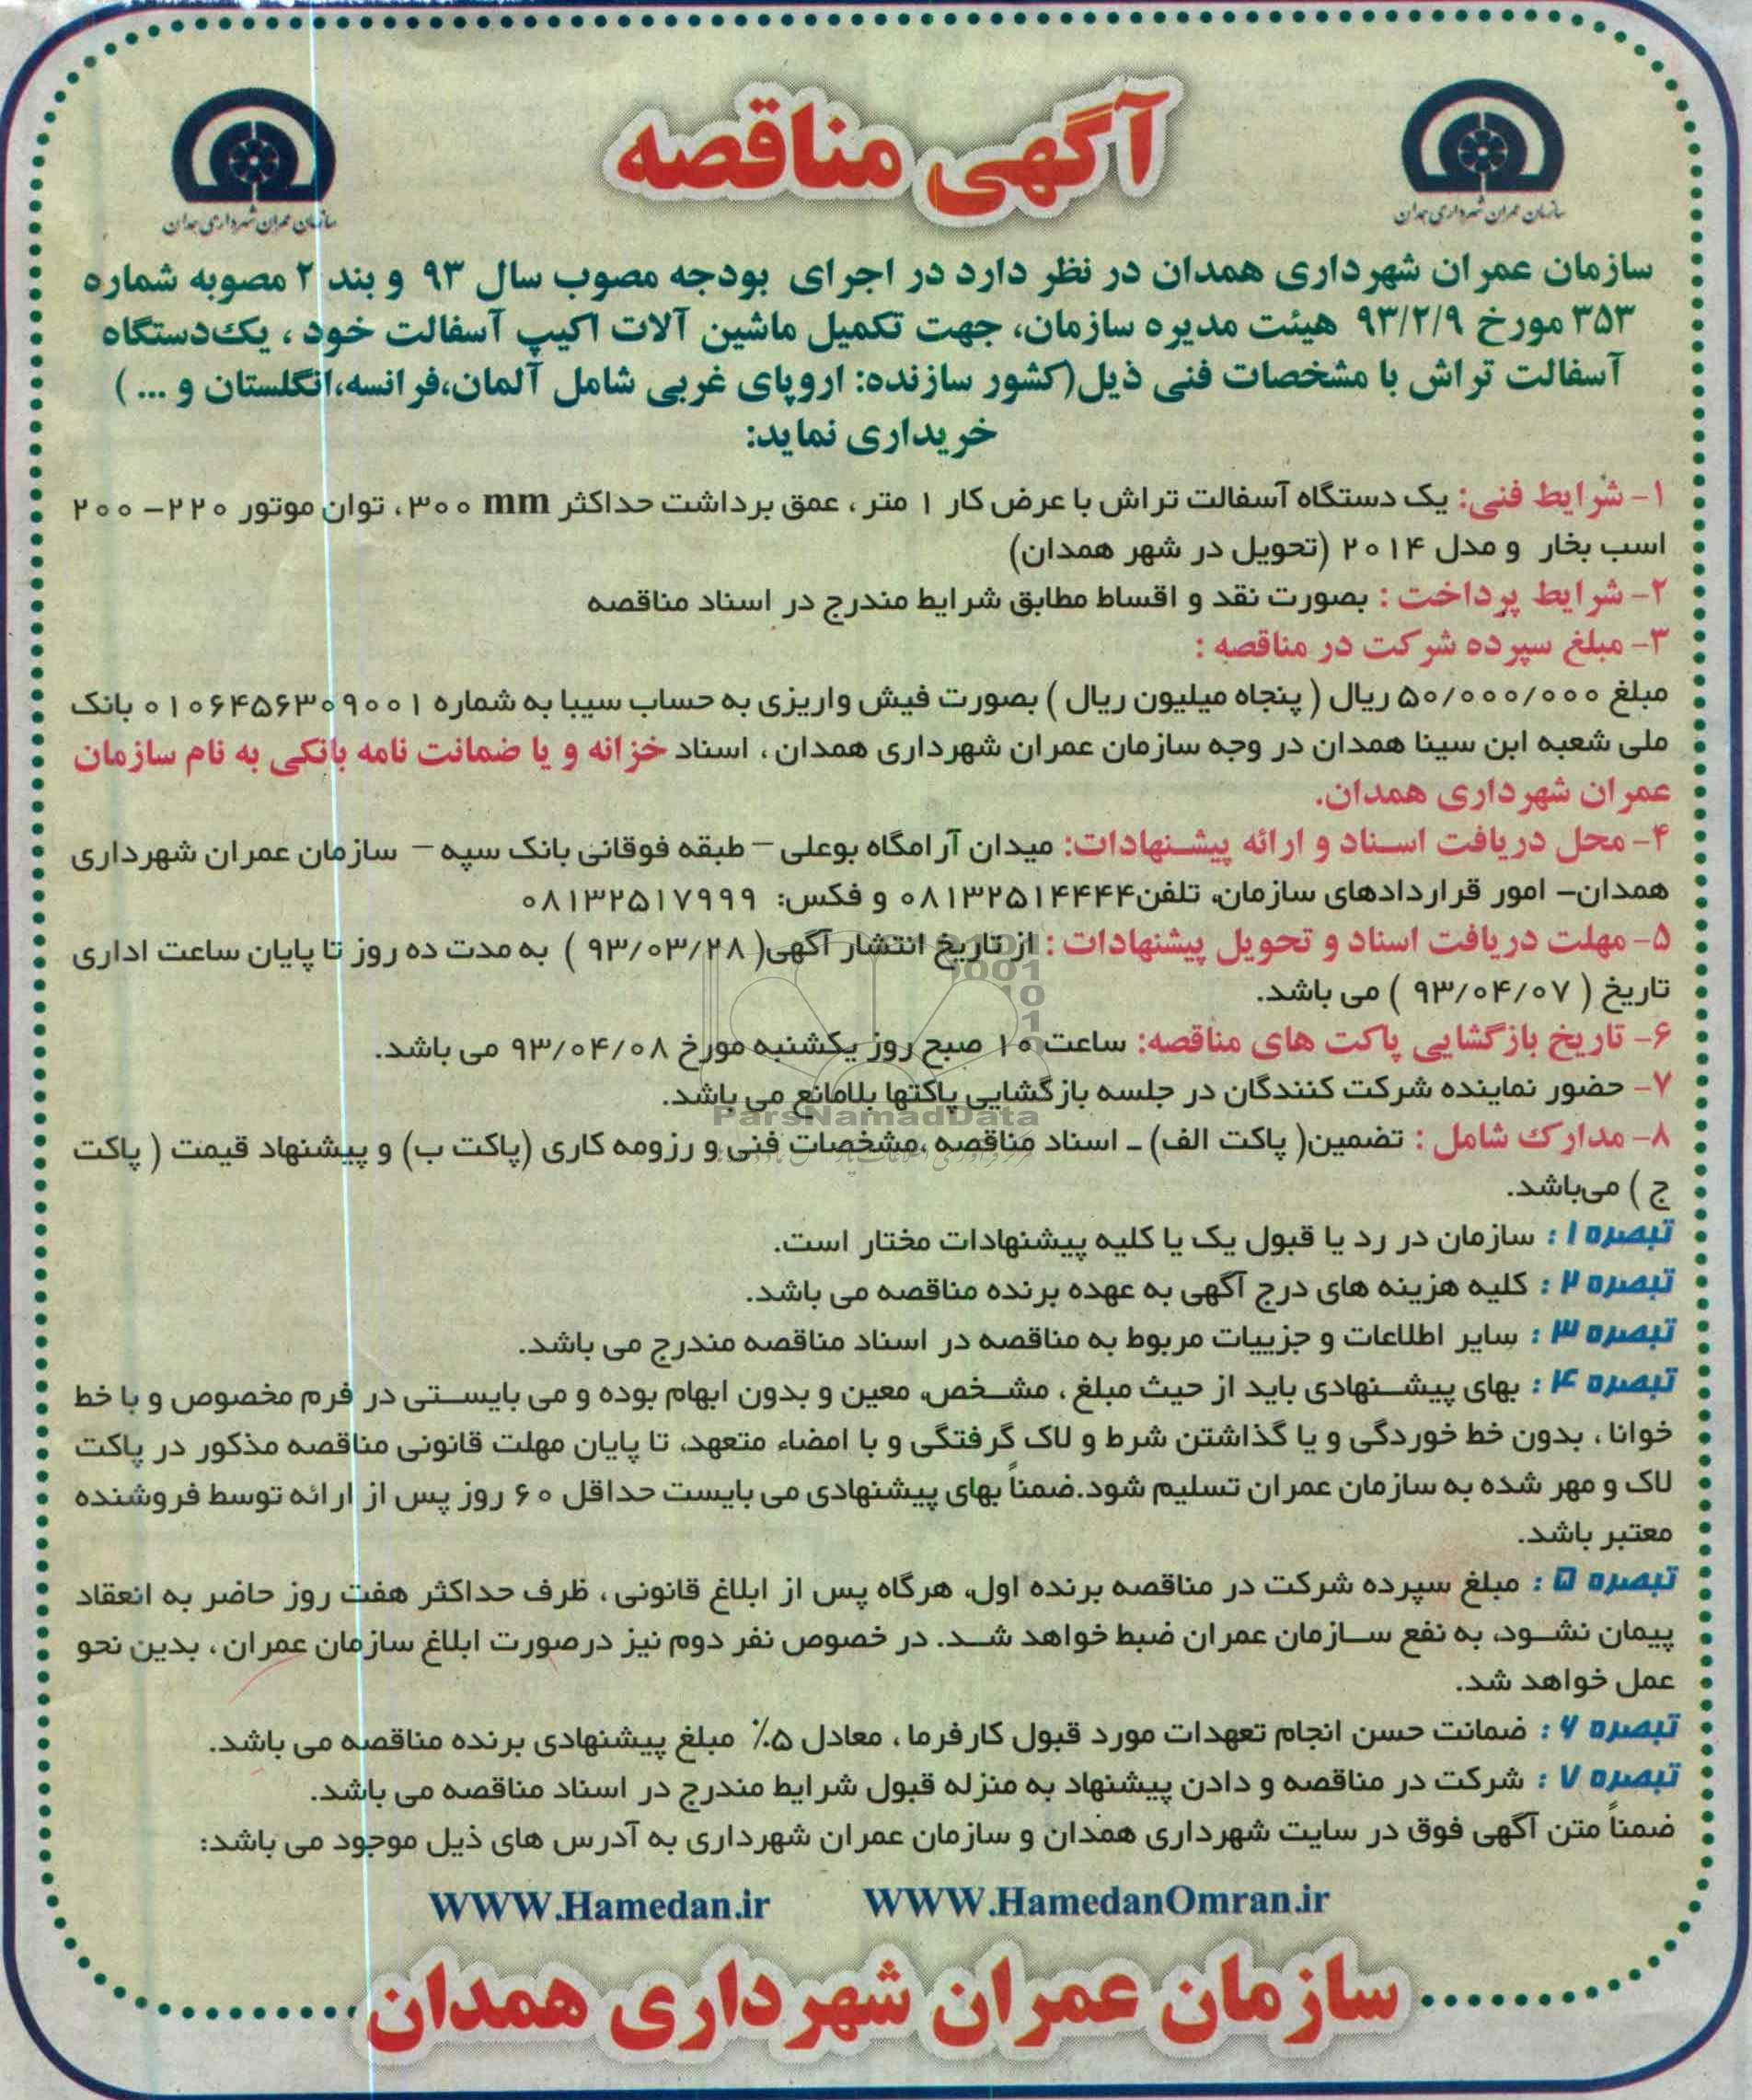 آگهی مناقصه
سازمان عمران شهرداری همدان
سازمان عمران شهرداری همدان
سازمان عمران شهرداری همدان در نظر دارد در اجرای بودجه مصوب سال ۹۳ و بند ۲ مصوبه شماره
۳۵۳ مورخ ۹۳/۲/۹ هیئت مدیره سازمان، جهت تکمیل ماشین آلات اکیپ آسفالت خود ، یک‌دستگاه
آسفالت تراش با مشخصات فنی ذیل(کشور سازنده: اروپای غربی شامل آلمان،فرانسه،انگلستان و ... )
خریداری نماید:
۱- شرایط فنی: یک دستگاه آسفالت تراش با عرض کار ۱ متر ، عمق برداشت حداکثر ۳۰۰ mm، توان موتور ۲۲۰- ۲۰۰
اسب بخار و مدل ۲۰۱۴ (تحویل در شهر همدان)
۲- شرایط پرداخت : بصورت نقد و اقساط مطابق شرایط مندرج در اسناد مناقصه
۳- مبلغ سپرده شرکت در مناقصه :
مبلغ ۵۰/۰۰۰/۰۰۰ ریال ( پنجاه میلیون ریال ) بصورت فیش واریزی به حساب سیبا به شماره ۰۱۰۶۴۵۶۳۰۹۰۰۱ بانک
ملی شعبه ابن سینا همدان در وجه سازمان عمران شهرداری همدان ، اسناد خزانه و یا ضمانت نامه بانکی به نام سازمان
عمران شهرداری همدان.
۴- محل دریافت اسناد و ارائه پیشنهادات: میدان آرامگاه بوعلی – طبقه فوقانی بانک سپه – سازمان عمران شهرداری
همدان- امور قراردادهای سازمان، تلفن۰۸۱۳۲۵۱۴۴۴۴ و فکس: ۰۸۱۳۲۵۱۷۹۹۹
۵- مهلت دریافت اسناد و تحویل پیشنهادات : از تاریخ انتشار آگهی( ۹۳/۰۳/۲۸ ) به مدت ده روز تا پایان ساعت اداری
تاریخ ( ۹۳/۰۴/۰۷ ) می باشد.
۶- تاریخ بازگشایی پاکت های مناقصه: ساعت ۱۰ صبح روز یکشنبه مورخ ۹۳/۰۴/۰۸ می باشد.
۷- حضور نماینده شرکت کنندگان در جلسه بازگشایی پاکتها بلامانع می باشد.
ParsNamadData
۸- مدارک شامل : تضمین( پاکت الف) - اسناد مناقصه ،مشخصات فنی و رزومه کاری (پاکت ب) و پیشنهاد قیمت ( پاکت
ج ) می‌باشد.
تبصره ۱ : سازمان در رد یا قبول یک یا کلیه پیشنهادات مختار است.
تبصره ۲ : کلیه هزینه های درج آگهی به عهده برنده مناقصه می باشد.
تبصره ۳ : سایر اطلاعات و جزییات مربوط به مناقصه در اسناد مناقصه مندرج می باشد.
تبصره ۴ : بهای پیشنهادی باید از حیث مبلغ ، مشخص، معین و بدون ابهام بوده و می بایستی در فرم مخصوص و با خط
خوانا ، بدون خط خوردگی و یا گذاشتن شرط و لاک گرفتگی و با امضاء متعهد، تا پایان مهلت قانونی مناقصه مذکور در پاکت
لاک و مهر شده به سازمان عمران تسلیم شود.ضمناً بهای پیشنهادی می بایست حداقل ۶۰ روز پس از ارائه توسط فروشنده
معتبر باشد.
تبصره ۵ : مبلغ سپرده شرکت در مناقصه برنده اول، هرگاه پس از ابلاغ قانونی ، ظرف حداکثر هفت روز حاضر به انعقاد
پیمان نشود، به نفع سازمان عمران ضبط خواهد شد. در خصوص نفر دوم نیز درصورت ابلاغ سازمان عمران ، بدین نحو
عمل خواهد شد.
تبصره ۶ : ضمانت حسن انجام تعهدات مورد قبول کارفرما ، معادل ۵٪ مبلغ پیشنهادی برنده مناقصه می باشد.
تبصره ۷ : شرکت در مناقصه و دادن پیشنهاد به منزله قبول شرایط مندرج در اسناد مناقصه می باشد.
ضمناً متن آگهی فوق در سایت شهرداری همدان و سازمان عمران شهرداری به آدرس های ذیل موجود می باشد:
WWW.Hamedan.ir WWW.HamedanOmran.ir
سازمان عمران شهرداری همدان